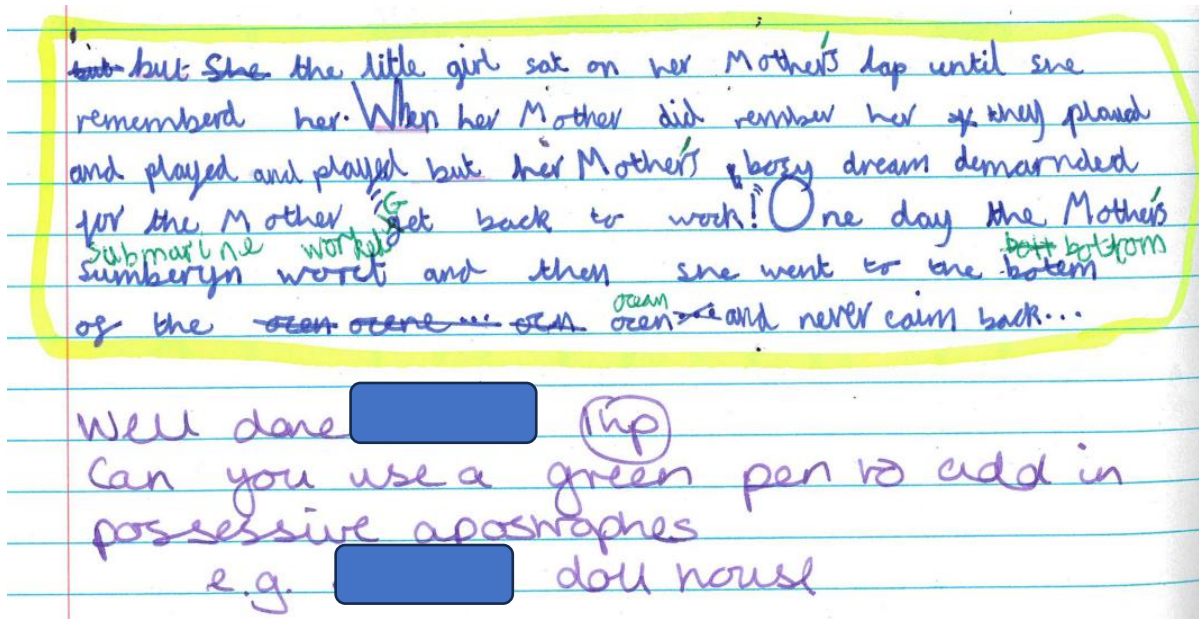 but but She the little girl sat on her Mother's lap until she
rememberd her. When her Mother did rember her they played
and played and played but her Mother's bosy dream demarnded
for the Mother "Get back to work!" One day the Mother's
submarine worked bott bottom
sumberyn worct and then she went to the botem
ocean
of the ocen ocene... ocn ocen and never caim back...
Well done 1hp
Can you use a green pen to add in
possessive apostrophes
e.g. doll house